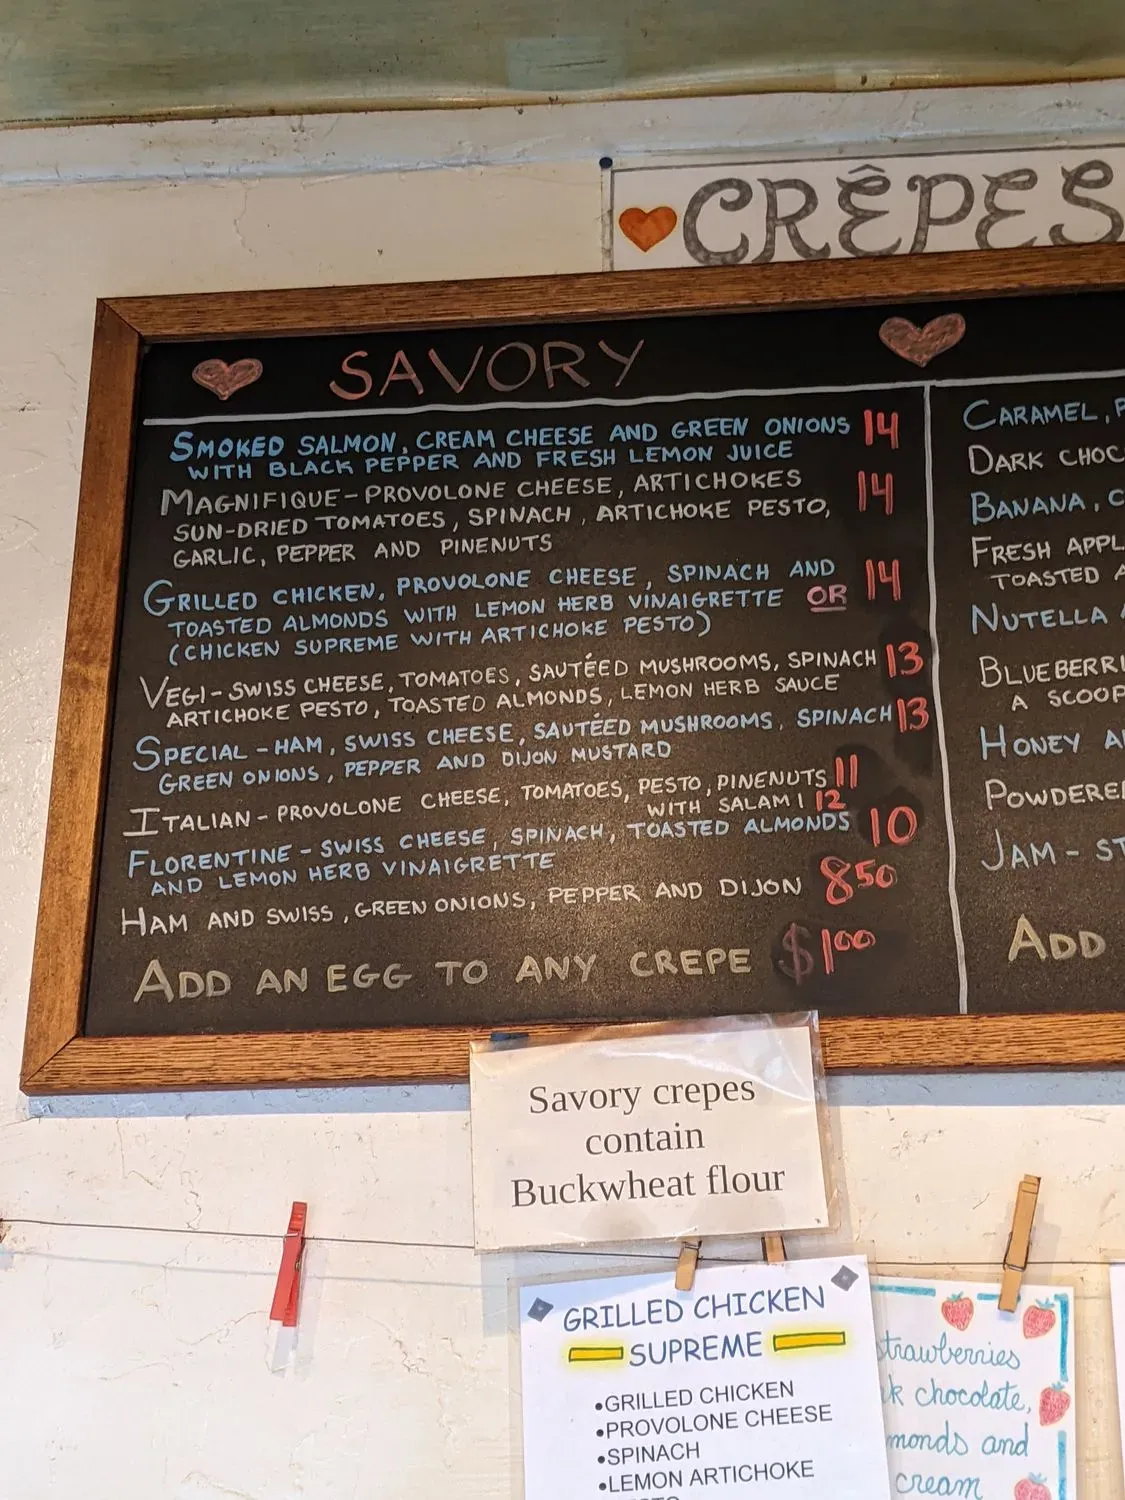 CRÊPES
SAVORY
SMOKED SALMON, CREAM CHEESE AND GREEN ONIONS 14
WITH BLACK PEPPER AND FRESH LEMON JUICE
MAGNIFIQUE - PROVOLONE CHEESE, ARTICHOKES 14
SUN-DRIED TOMATOES, SPINACH, ARTICHOKE PESTO,
GARLIC, PEPPER AND PINENUTS
GRILLED CHICKEN, PROVOLONE CHEESE, SPINACH AND 14
TOASTED ALMONDS WITH LEMON HERB VINAIGRETTE OR
(CHICKEN SUPREME WITH ARTICHOKE PESTO)
VEGI - SWISS CHEESE, TOMATOES, SAUTÉED MUSHROOMS, SPINACH 13
ARTICHOKE PESTO, TOASTED ALMONDS, LEMON HERB SAUCE
SPECIAL - HAM, SWISS CHEESE, SAUTÉED MUSHROOMS, SPINACH 13
GREEN ONIONS, PEPPER AND DIJON MUSTARD
ITALIAN - PROVOLONE CHEESE, TOMATOES, PESTO, PINENUTS 11
WITH SALAMI 12
FLORENTINE - SWISS CHEESE, SPINACH, TOASTED ALMONDS 10
AND LEMON HERB VINAIGRETTE
HAM AND SWISS, GREEN ONIONS, PEPPER AND DIJON 8 50
ADD AN EGG TO ANY CREPE $1 00
CARAMEL,
DARK
BANANA,
FRESH
TOASTED
NUTELLA
A SCOOP
HONEY
JAM -
ADD
Savory crepes
contain
Buckwheat flour
GRILLED CHICKEN
SUPREME
•GRILLED CHICKEN
•PROVOLONE CHEESE
•SPINACH
•LEMON ARTICHOKE
chocolate,
and
cream